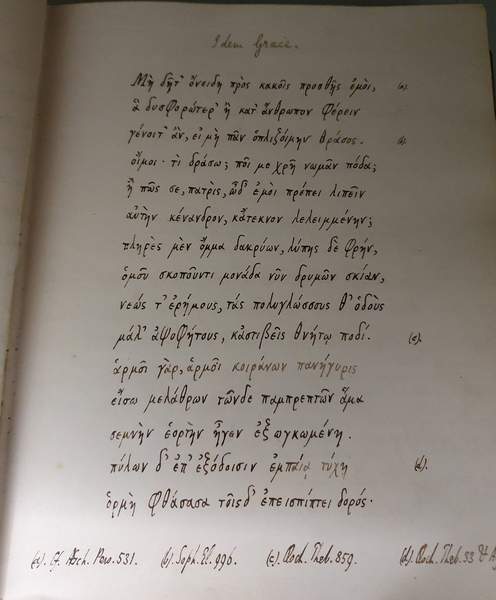 Idem Graece.
Μὴ δῆτ' ὀνείδη πρὸς κακοῖς προσθῇς ἐμοί, (a).
ἃ δυσφορώτερ' ἢ κατ' ἄνθρωπον φέρειν
γένοιτ' ἂν, εἰ μὴ πᾶν ὁπλιζοίμην θράσος. (b).
οἴμοι· τί δράσω; ποῖ με χρὴ νωμᾶν πόδα;
ἢ πῶς σε, πατρὶς, ὧδ' ἐμοὶ πρέπει λιπεῖν
αὐτὴν κένανδρον, κἄτεκνον λελειμμένην;
πλῆρες μὲν ὄμμα δακρύων, λύπης δὲ φρήν,
ὁμοῦ σκοποῦντι μονάδα νῦν δρυμῶν σκίαν,
νεώς τ' ἐρήμους, τὰς πολυγλώσσους θ' ὁδοὺς
μάλ' ἀψοφήτους, κἀστιβεῖς θνήτῳ ποδί. (c).
ἁρμοῖ γὰρ, ἁρμοῖ κοιράνων πανήγυρις
εἴσω μελάθρων τῶνδε παμπρεπτῶν ἅμα
σεμνὴν ἑορτὴν ἦγεν ἐξωγκωμένη.
πύλων δ' ἐπ' ἐξόδοισιν ἐμπαίᾳ τύχῃ (d).
ὁρμὴ φθάσασα τοῖσδ' ἐπεισπίπτει δορός·
(a). Cf. Æsch. Pers. 531. (b). Soph. El. 996. (c). Æsch. Theb. 859. (d). Æsch. Theb. 33 &